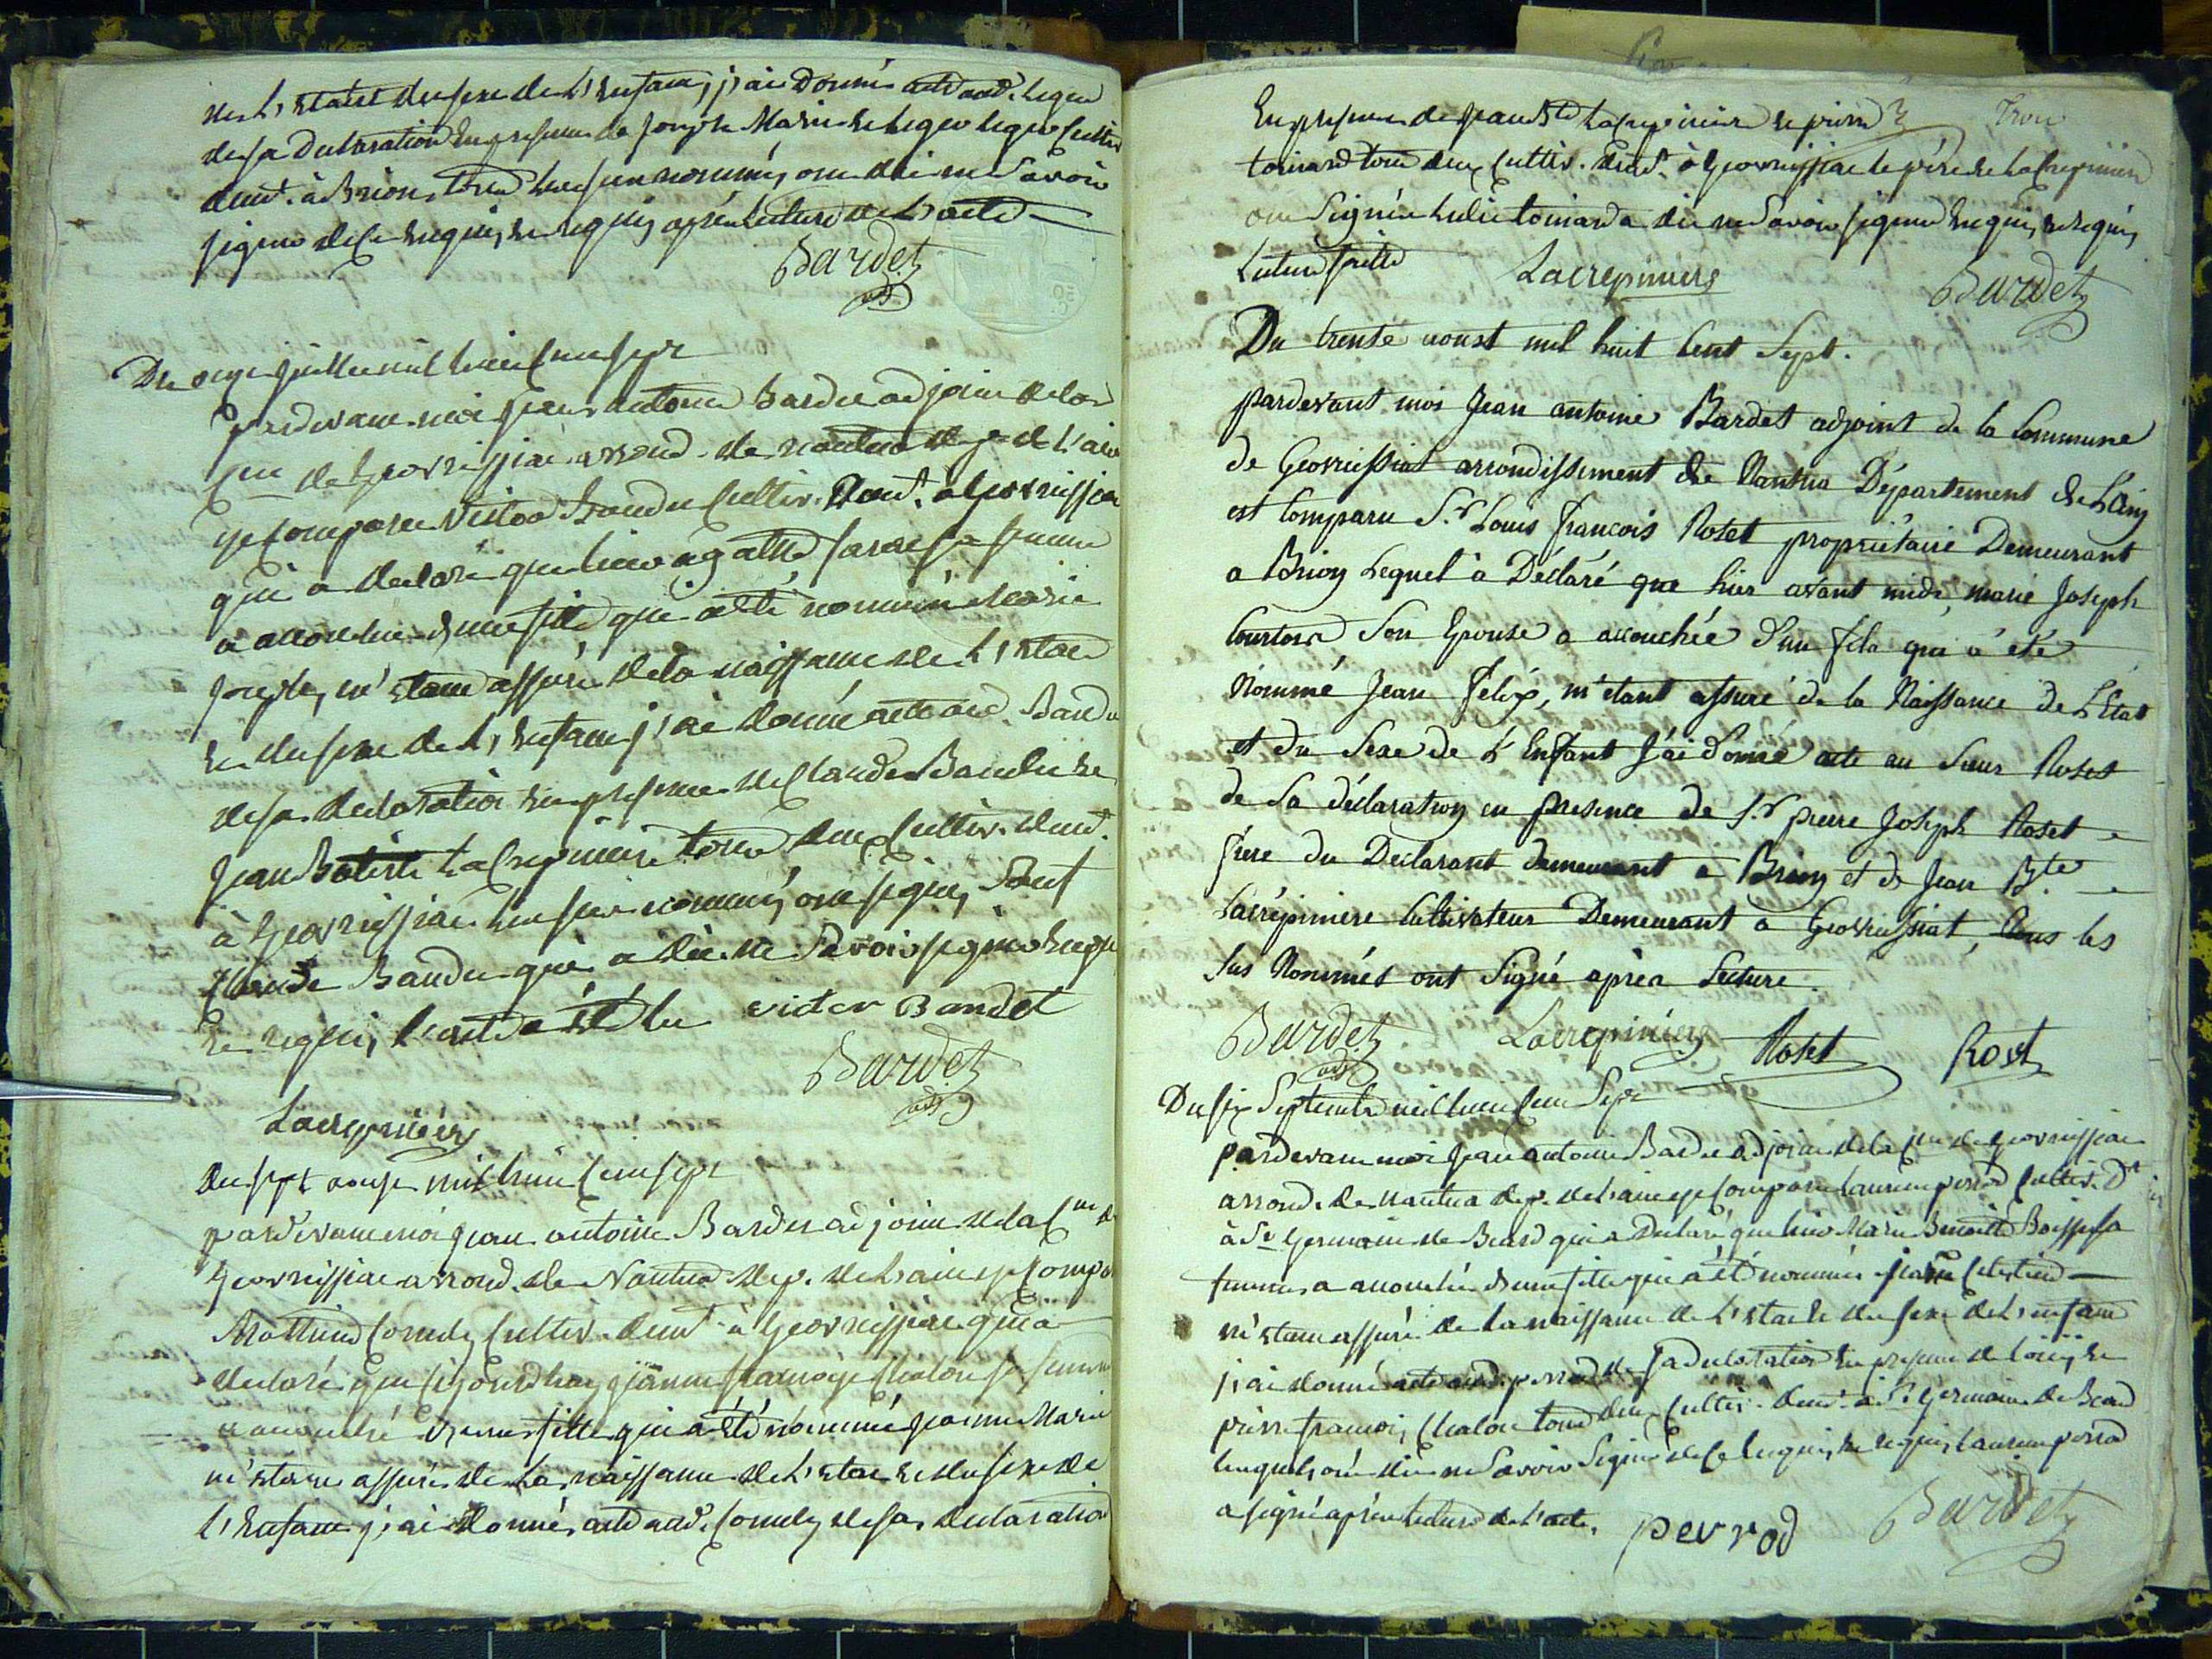 de L'Etat et du sexe de L'Enfant, j'ai Donné acte aud. Lequ
de sa Declaration En presence de Joseph Marie Lequ Cultiv
demt. à Brion, tous sus nommés ont dit ne savoir
signer de ce Enquis, et requis, après Lecture de L'acte
Bardet
adj
Du onze juillet mil huit Cent sept
pardevant moi jean antoine Bardet adjoint de la
Cne de Geovreissiat arrond. de nantua dep. de L'ain
est Comparu Victor Baudet Cultiv. Demt. à Geovreissiat
qui a declaré que hier agathe sa femme
a accouchée d'une fille qui a été nommée Marie
Josephte, m'étant assuré de la naissance de L'Etat
et du sexe de L'Enfant j'ai donné acte aud. Baudet
de sa declaration En presence de Claude Baudet et
Jean Batiste LaCrepiniere tous deux Cultiv. demt.
à Geovreissiat Les sus nommés ont signés, sauf
Claude Baudet qui a dit ne savoir signer Enquis
Et requis, L'acte a été lu victor Bandet
Bardet
adj
Lacrepiniere
Du sept aoust mil huit Cent sept
pardevant moi jean antoine Bardet adjoint de la Cne de
Geovreissiat arrond. de Nantua dep. de L'ain est Compa
Mathieu Comely Cultiv. demt. à Geovreissiat qui a
declaré que Cejourdhuy jeanne françoise Chalon sa femme
a accouchée d'une fille qui a été nommée jeanne Marie
m'étant assuré de La naissance de L'Etat et du sexe de
L'Enfant j'ai donné acte aud. Comely de sa declaration
En presence de jean Bte LaCrepiniere et pierre
toinard tous deux Cultiv. demt. à Geovreissiat le père et LaCrepiniere
ont Signé et Ledit toinard a dit ne savoir signer Enquis, et requis,
Lecture faitte Lacrepiniere Bardet
Du trente aoust mil huit Cent Sept.
pardevant moi Jean antoine Bardet adjoint de la Commune
de Geovreissiat arrondissement de Nantua Département de L'ain
est Comparu S.r Louis François Roset propriétaire Demeurant
a Brion Lequel à Déclaré que hier avant midi, marie Joseph
Courtois Son Epouse a accouchée d'un fils qui a été
Nommé Jean Felix, m'étant assuré de la Naissance de L'Etat
et du Sexe de L'Enfant J'ai donné acte au Sieur Roset
de Sa déclaration en presence de S.r pierre Joseph Roset
frere du Declarant demeurant a Brion et de Jean B.te
Lacrépiniere Cultivateur Demeurant a Geovreissiat, Tous les
Sus Nommés ont Signé après Lecture.
Bardet Lacrepiniere Roset Roset
adj
Du six Septembre mil huit Cent Sept
pardevant moi Jean antoine Bardet adjoint de la Cne de Geovreissiat
arrond. de Nantua dep. de L'ain est Comparu Laurent perrod Cultiv. Dt
à St Germain de Beard qui a Declaré que hier Marie Benoitte Boisse sa
femme a accouchée d'une fille qui a été nommée jeanne Celestine
m'étant assuré de La naissance de L'Etat et du sexe de L'enfant
j'ai donné acte aud. perrod de sa declaration En presence de Louis et
pierre françois Chalon tous deux Cultiv. demt. à St. Germain de Beard
Lesquels ont dit ne savoir Signer de ce Enquis, et requis, Laurent perrod
a signé après Lecture de L'acte. perrod Bardet